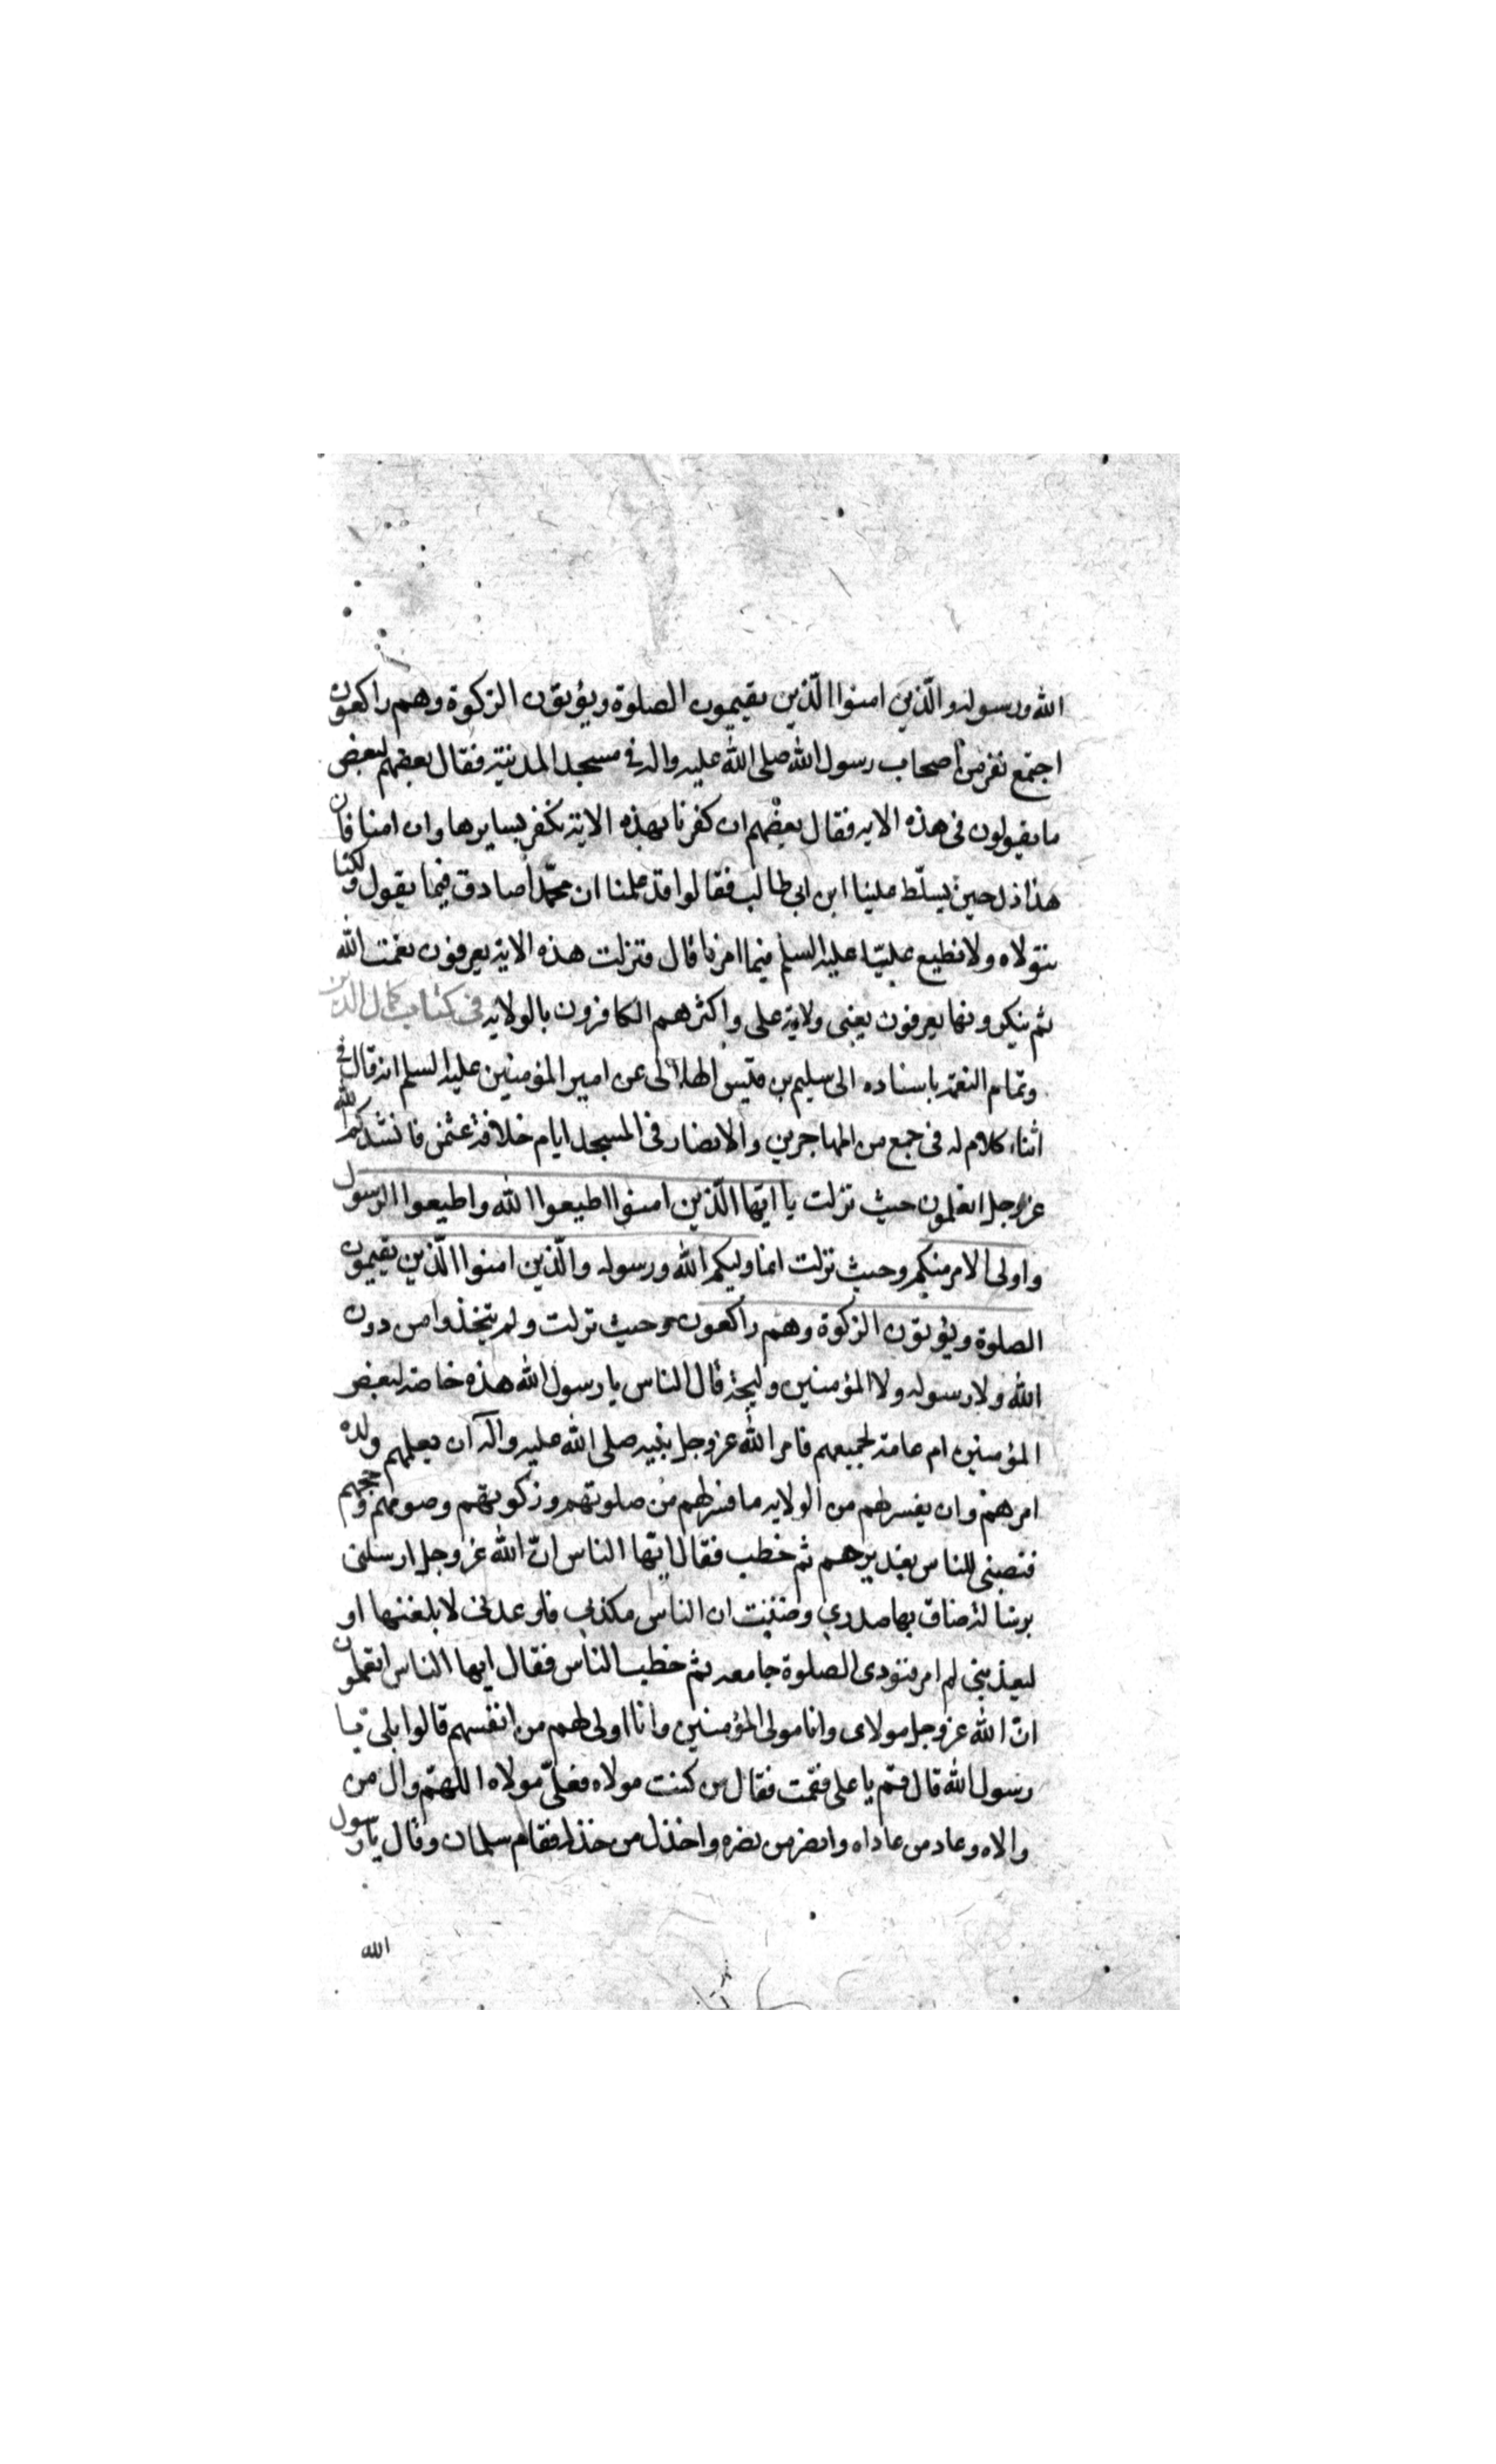 الله ورسوله والّذين امنوا الّذين يقيمون الصلوة ويؤتون الزكوة وهم راكعون
اجتمع نفر من اصحاب رسول الله صلى الله عليه واله في مسجد المدينة فقال بعضهم لبعض
ما يقولون فى هذه الايه فقال بعضهم ان كفرنا بهذه الاية نكفر بسايرها وان امنا فان
هذا ذل حين يسلّط علينا ابن ابى طالب فقالوا قد علمنا ان محمّدا صادق فيما يقول ولكنا
نتولاه ولا نطيع عليّا عليه السلم فيما امرنا قال فنزلت هذه الاية يعرفون نعمت الله
ثم ينكرونها يعرفون يعنى ولاية على واكثرهم الكافرون بالولايه فى كتاب كمال الدين
وتمام النعمة باسناده الى سليم بن قيس الهلالى عن امير المؤمنين عليه السلم انه قال فى
اثناء كلام له فى جمع من المهاجرين والانصار فى المسجد ايام خلافة عثمن فانشدكم الله
عز وجل اتعلمون حيث نزلت يا ايّها الّذين امنوا اطيعوا الله واطيعوا الرسول
واولى الامر منكم وحيث نزلت انما وليكم الله ورسوله والّذين امنوا الّذين يقيمون
الصلوة ويؤتون الزكوة وهم راكعون وحيث نزلت ولم يتخذوا من دون
الله ولا رسوله ولا المؤمنين وليجة قال الناس يا رسول الله هذه خاصة لبعض
المؤمنين ام عامة لجميعهم فامر الله عز وجل نبيه صلى الله عليه واله ان يعلمهم ولاه
امرهم وان يفسر لهم من الولايه ما فسر لهم من صلوتهم وزكوتهم وصومهم وحجهم
فنصبنى للناس بغدير خم ثم خطب فقال ايّها الناس انّ الله عز وجل ارسلنى
برسالة ضاق بها صدرى وظننت ان الناس مكذبى فاوعدنى لابلغنها او
ليعذبنى لم امر فنودى الصلوة جامعه ثم خطب الناس فقال ايها الناس اتعلمون
انّ الله عز وجل مولاى وانا مولى المؤمنين وانا اولى لهم من انفسهم قالوا بلى يا
رسول الله قال قم يا على فقمت فقال من كنت مولاه فعلىّ مولاه اللهمّ وال من
والاه وعاد من عاداه وانصر من نصره واخذل من خذله فقام سلمان وقال يا رسول
الله